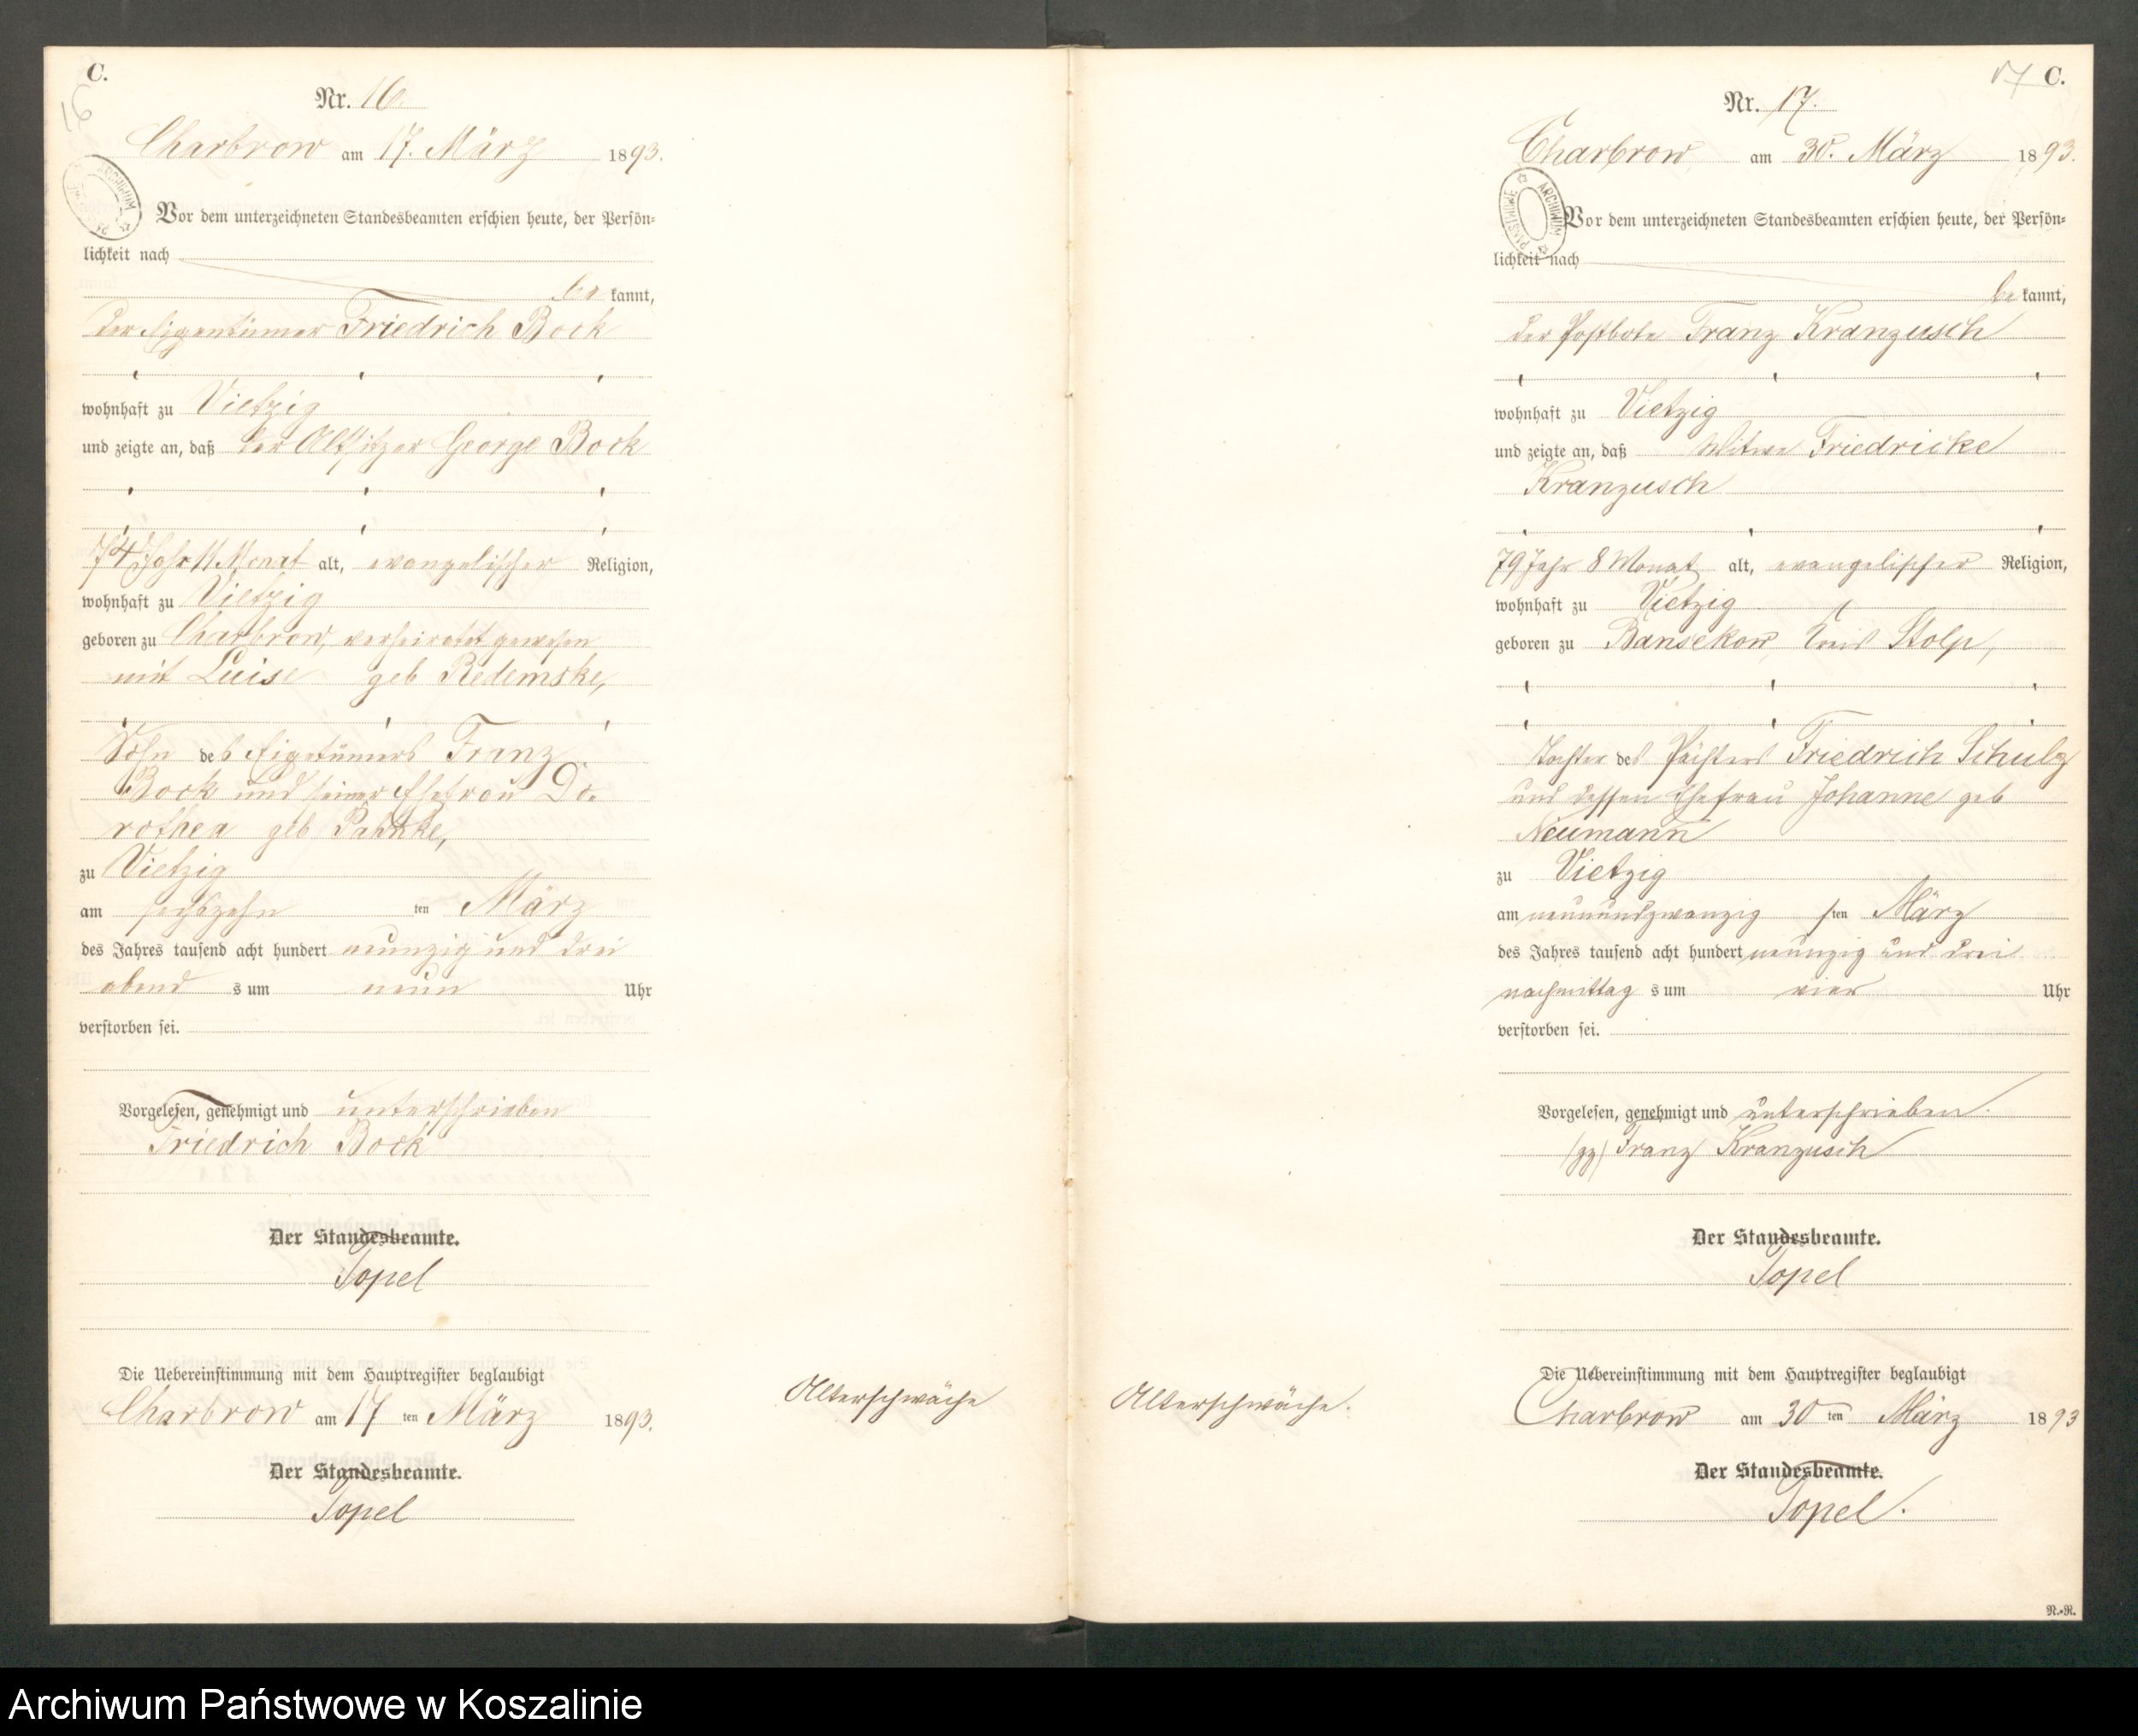 C.
16
Nr. 16.
Charbrow am 17. März 1893.
Vor dem unterzeichneten Standesbeamten erschien heute, der Persön=
lichkeit nach
be kannt,
der Eigentümer Friedrich Bock
wohnhaft zu Vietzig
und zeigte an, daß der Altsitzer George Bock
74 Jahr 11 Monat alt, evangelischer Religion,
wohnhaft zu Vietzig
geboren zu Charbrow, verheiratet gewesen
mit Luise geb Redemske,
Sohn des Eigetümers Franz
Bock und seiner Ehefrau Do=
rothea geb Pahnke,
zu Vietzig
am sechszehn ten März
des Jahres tausend acht hundert neunzig und drei
abend s um neun Uhr
verstorben sei.
Vorgelesen, genehmigt und unterschrieben
Friedrich Bock
Der Standesbeamte.
Topel
Die Uebereinstimmung mit dem Hauptregister beglaubigt
Charbrow am 17 ten März 1893.
Der Standesbeamte.
Topel
Alterschwäche
17 C.
Nr. 17.
Charbrow am 30. März 1893.
ARCHIWUM PAŃSTWOWE
Vor dem unterzeichneten Standesbeamten erschien heute, der Persön=
lichkeit nach
be kannt,
der Postbote Franz Kranzusch
wohnhaft zu Vietzig
und zeigte an, daß Witwe Friedricke
Kranzusch
79 Jahr 8 Monat alt, evangelischer Religion,
wohnhaft zu Vietzig
geboren zu Bansekow, Kreis Stolp,
Tochter des Pächters Friedrich Schulz
und dessen Ehefrau Johanne geb
Neumann
zu Vietzig
am neunundzwanzig sten März
des Jahres tausend acht hundert neunzig und drei
nachmittag s um vier Uhr
verstorben sei.
Vorgelesen, genehmigt und unterschrieben.
(gz) Franz Kranzusch
Der Standesbeamte.
Topel
Die Uebereinstimmung mit dem Hauptregister beglaubigt
Charbrow am 30 ten März 1893
Der Standesbeamte.
Topel.
Alterschwäche.
R.=R.
Archiwum Państwowe w Koszalinie